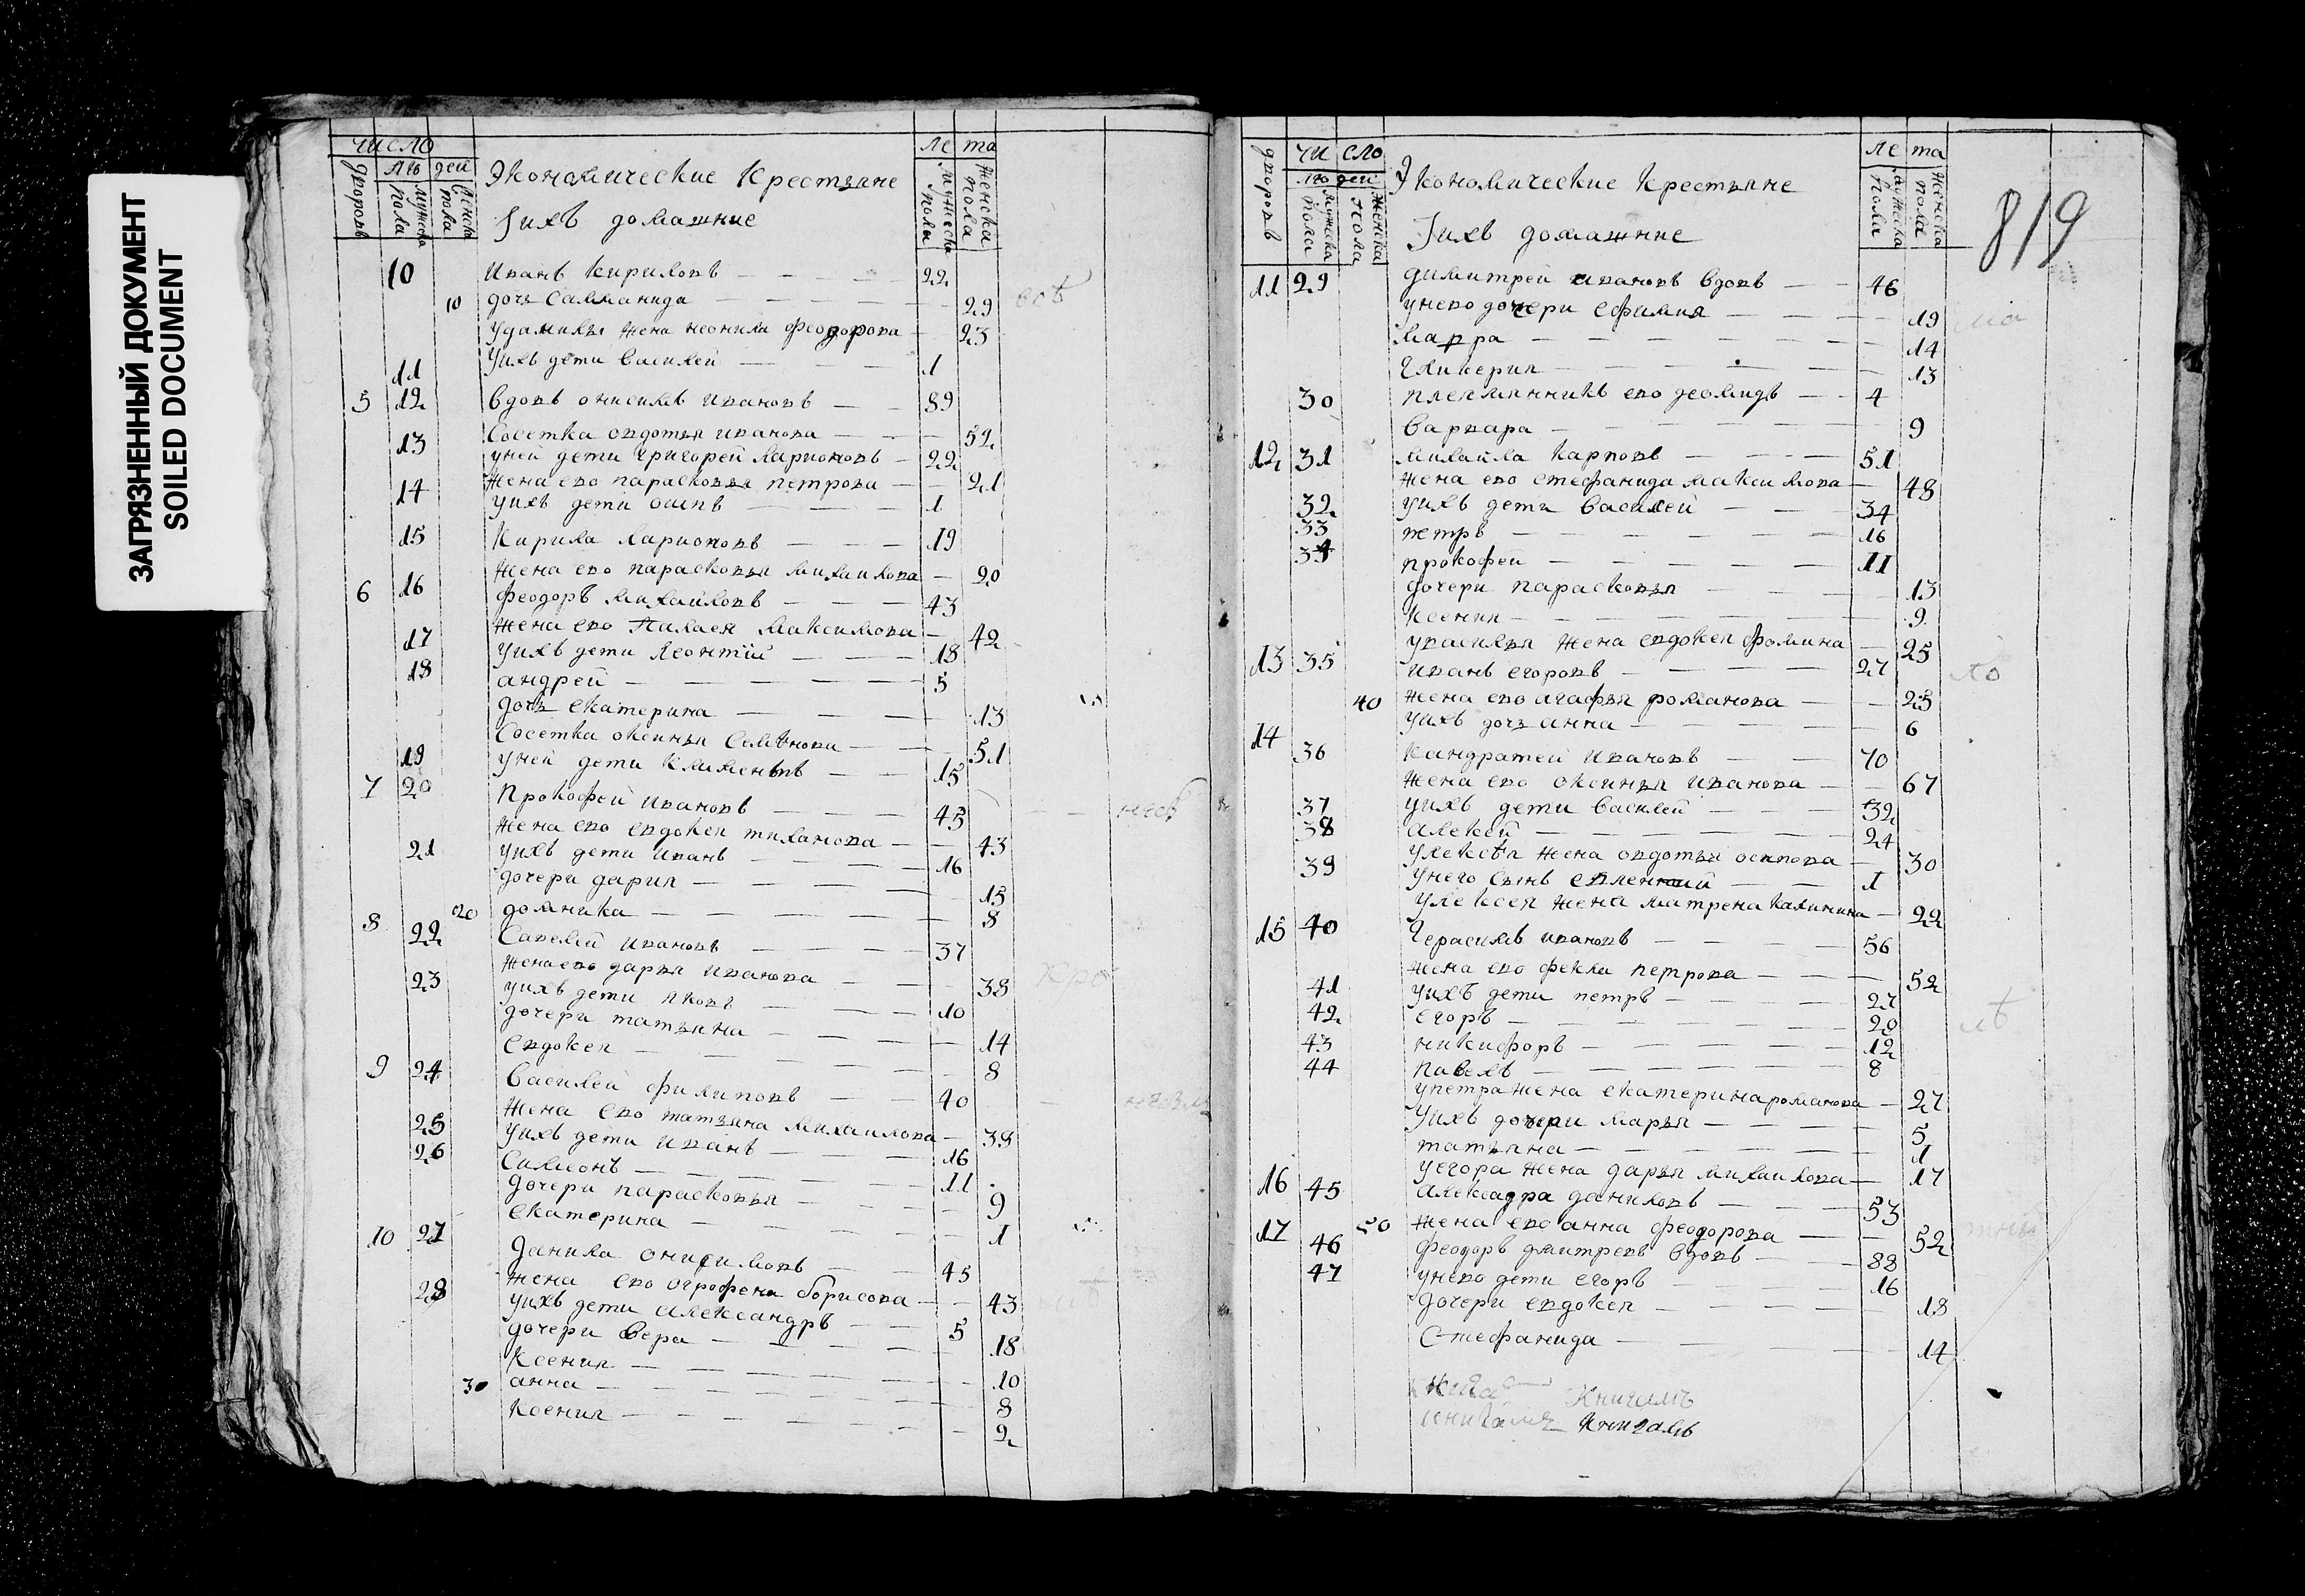 ЗАГРЯЗНЕННЫЙ ДОКУМЕНТ
SOILED DOCUMENT
число ле та
дворовъ лю дей мужеска пола женска пола
Экономические Крестьяне
Iихъ домашние
мужеска пола женска пола
10 Иванъ Кириловъ 22
10 дочь Саломанида 29
Уданилы жена неонила феодорова 23
11 Уихъ дети Василей 1
5 12 Вдовъ онисимъ ивановъ 89
Сосетка овдотья иванова 52
13 уней дети григорей ларионовъ 22
жена ево парасковья петрова 21
14 уихъ дети осипъ 1
15 Кирила ларионовъ 19
жена ево парасковья михаилова 20
6 16 феодоръ михаиловъ 43
жена ево Палаея Максимова 42
17 уихъ дети леонтiй 18
18 андрей 5
дочь екатерина 13
Сосетка оксинья Семѣнова 51
19 уней дети Клименътъ 15
7 20 Прокофей ивановъ 45
жена ево евдокея тиханова 43
21 уихъ дети иванъ 16
дочери дария 15
20 домника 8
8 22 Савелий ивановъ 37
жена ево дарья иванова 38
23 уихъ дети яковъ 10
дочери татьяна 14
Евдокея 8
9 24 Василей филиповъ 40
жена ево татьяна михаилова 38
25 уихъ дети иванъ 16
26 Симионъ 11
дочери парасковья 9
екатерина 1
10 27 Данила онисимовъ 45
жена ево огрофена борисова 43
28 уихъ дети александръ 5
дочери вера 18
Ксения 10
30 анна 8
Ксения 2
819
чи сло ле та
дворовъ лю дей мужеска пола женска пола
Экономические Крестьяне
Iихъ домашние
мужеска пола женска пола
11 29 димитрей ивановъ вдовъ 46
унево дочери ефимия 19
марра 14
гликерия 13
30 племянникъ ево деомидъ 4
варвара 9
12 31 михаила карповъ 51
жена ево стефанида максимова 48
32 уихъ дети василей 34
33 петръ 16
34 прокофей 11
дочери парасковья 13
ксения 9
увасилья жена евдокея фомина 25
13 35 иванъ егоровъ 27
40 жена ево агафья романова 25
уихъ дочь анна 6
14 36 Кандратей ивановъ 70
жена ево оксинья иванова 67
37 уихъ дети василей 32
38 алексей 24
жена овдотья осипова 30
39 унего сынъ 1
улексея жена матрена калинина 22
15 40 Герасимъ ивановъ 56
жена ево фекла петрова 52
41 уихъ дети петръ 27
42 егоръ 20
43 никифоръ 12
44 павелъ 8
упетра жена екатерина романова 27
уихъ дочери марья 5
татьяна 1
уегора жена дарья михаилова 17
16 45 алексадра даниловъ 53
50 жена ево анна феодорова 52
17 46 феодоръ дмитревъ вдовъ 88
47 унево дети егоръ 16
дочери евдокея 18
Стефанида 14
Книгамъ
Книгамъ